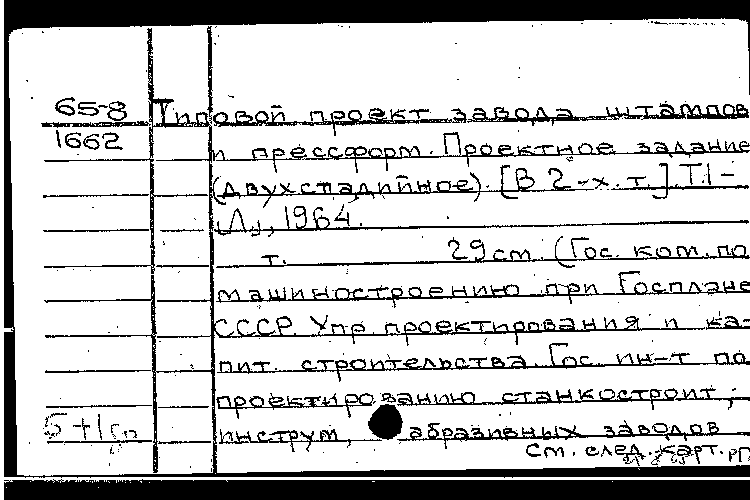 65-8 Типовой проект завода штампов
1662 и прессформ. Проектное задание
(двухстадийное). [В 2-х. т.] Т.1-
Л., 1964.
т. 29см. (Гос. ком. по
машиностроению при Госплане
СССР. Упр. проектирования и ка-
пит. строительства. Гос. ин-т по
проектированию станкостроит.,
инструм., абразивных заводов
См. след. карт.